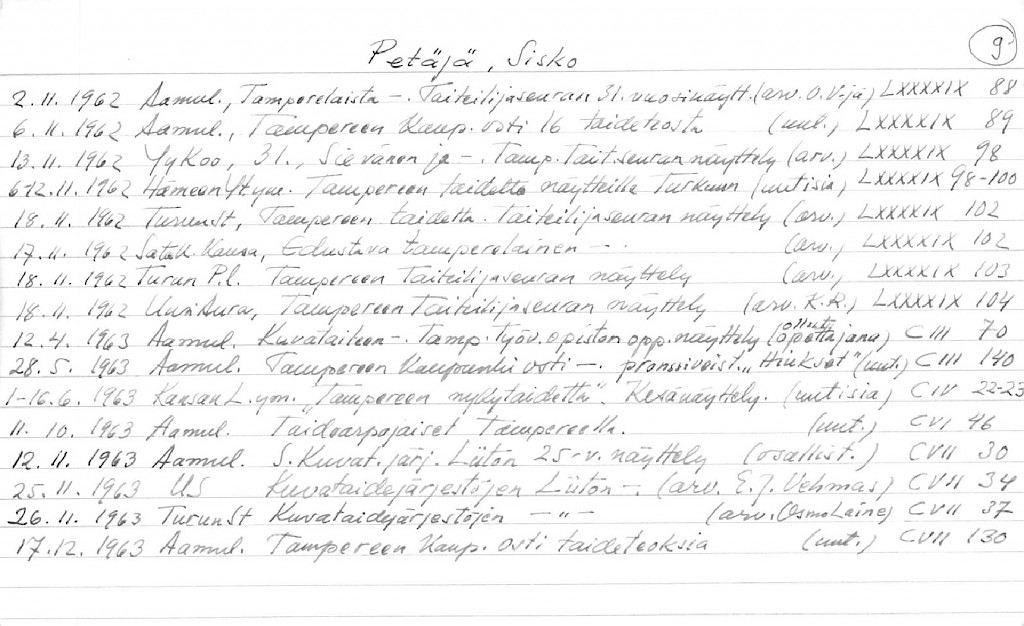 9
Petäjä, Sisko
2.11.1962 Aamul., Tamperelaista -. Taiteilijaseuran 31. vuosinäytt. (arv. O.V-jä) LXXXXIX 88
6.11.1962 Aamul., Tampereen Kaup. osti 16 taideteosta (uut.) LXXXXIX 89
13.11.1962 JyKoo, 31., Sievänen ja -. Tamp. Tait.seuran näyttely (arv.) LXXXXIX 98
6-12.11.1962 Hämeen Ytym. Tampereen taidetta näytteillä Turkuun (uutisia) LXXXXIX 98-100
18.11.1962 TurunSt, Tampereen taidetta. Taiteilijaseuran näyttely (arv.) LXXXXIX 102
17.11.1962 Satak. Kansa, Edustava tamperelainen - . (arv.) LXXXXIX 102
18.11.1962 Turun P.l. Tampereen Taiteilijaseuran näyttely (arv.) LXXXXIX 103
18.11.1962 Uusi Aura, Tampereen Taiteilijaseuran näyttely (arv. K.R.) LXXXXIX 104
12.4.1963 Aamul. Kuvataiteen -. Tamp. Työv.opiston opp.näyttely (ollut opettajana) CIII 70
28.5.1963 Aamul. Tampereen Kaupunki osti -. pronssiveist. "Hiukset" (uut.) CIII 140
1-16.6.1963 Kansan L. ym. "Tampereen nykytaidetta". Kesänäyttely. (uutisia) CIV 22-23
11.10.1963 Aamul. Taidearpajaiset Tampereella. (uut.) CVI 46
12.11.1963 Aamul. S. Kuvat. järj. Liiton 25-v. näyttely (osallist.) CVII 30
25.11.1963 US Kuvataidejärjestöjen Liiton -. (arv. E.J. Vehmas) CVII 34
26.11.1963 TurunSt Kuvataidejärjestöjen - " - (arv. Osmo Laine) CVII 37
17.12.1963 Aamul. Tampereen Kaup. osti taideteoksia (uut.) CVII 130